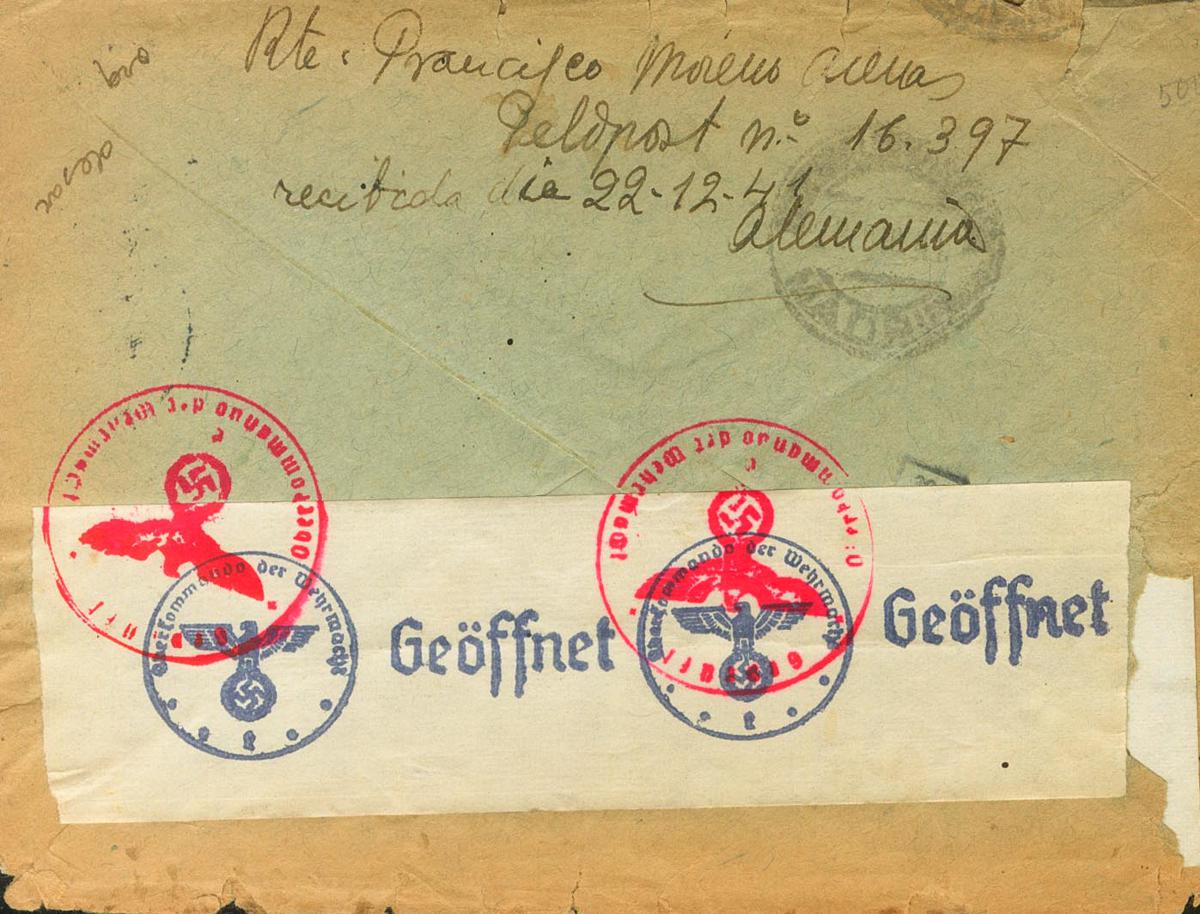 Rte. Francisco Moreno Arenas
Feldpost n.º 16.397
recibida dia 22-12-41
Alemania
Oberkommando der Wehrmacht
Geprüft
Oberkommando der Wehrmacht
Geprüft
Oberkommando der Wehrmacht
Geöffnet
Oberkommando der Wehrmacht
Geöffnet